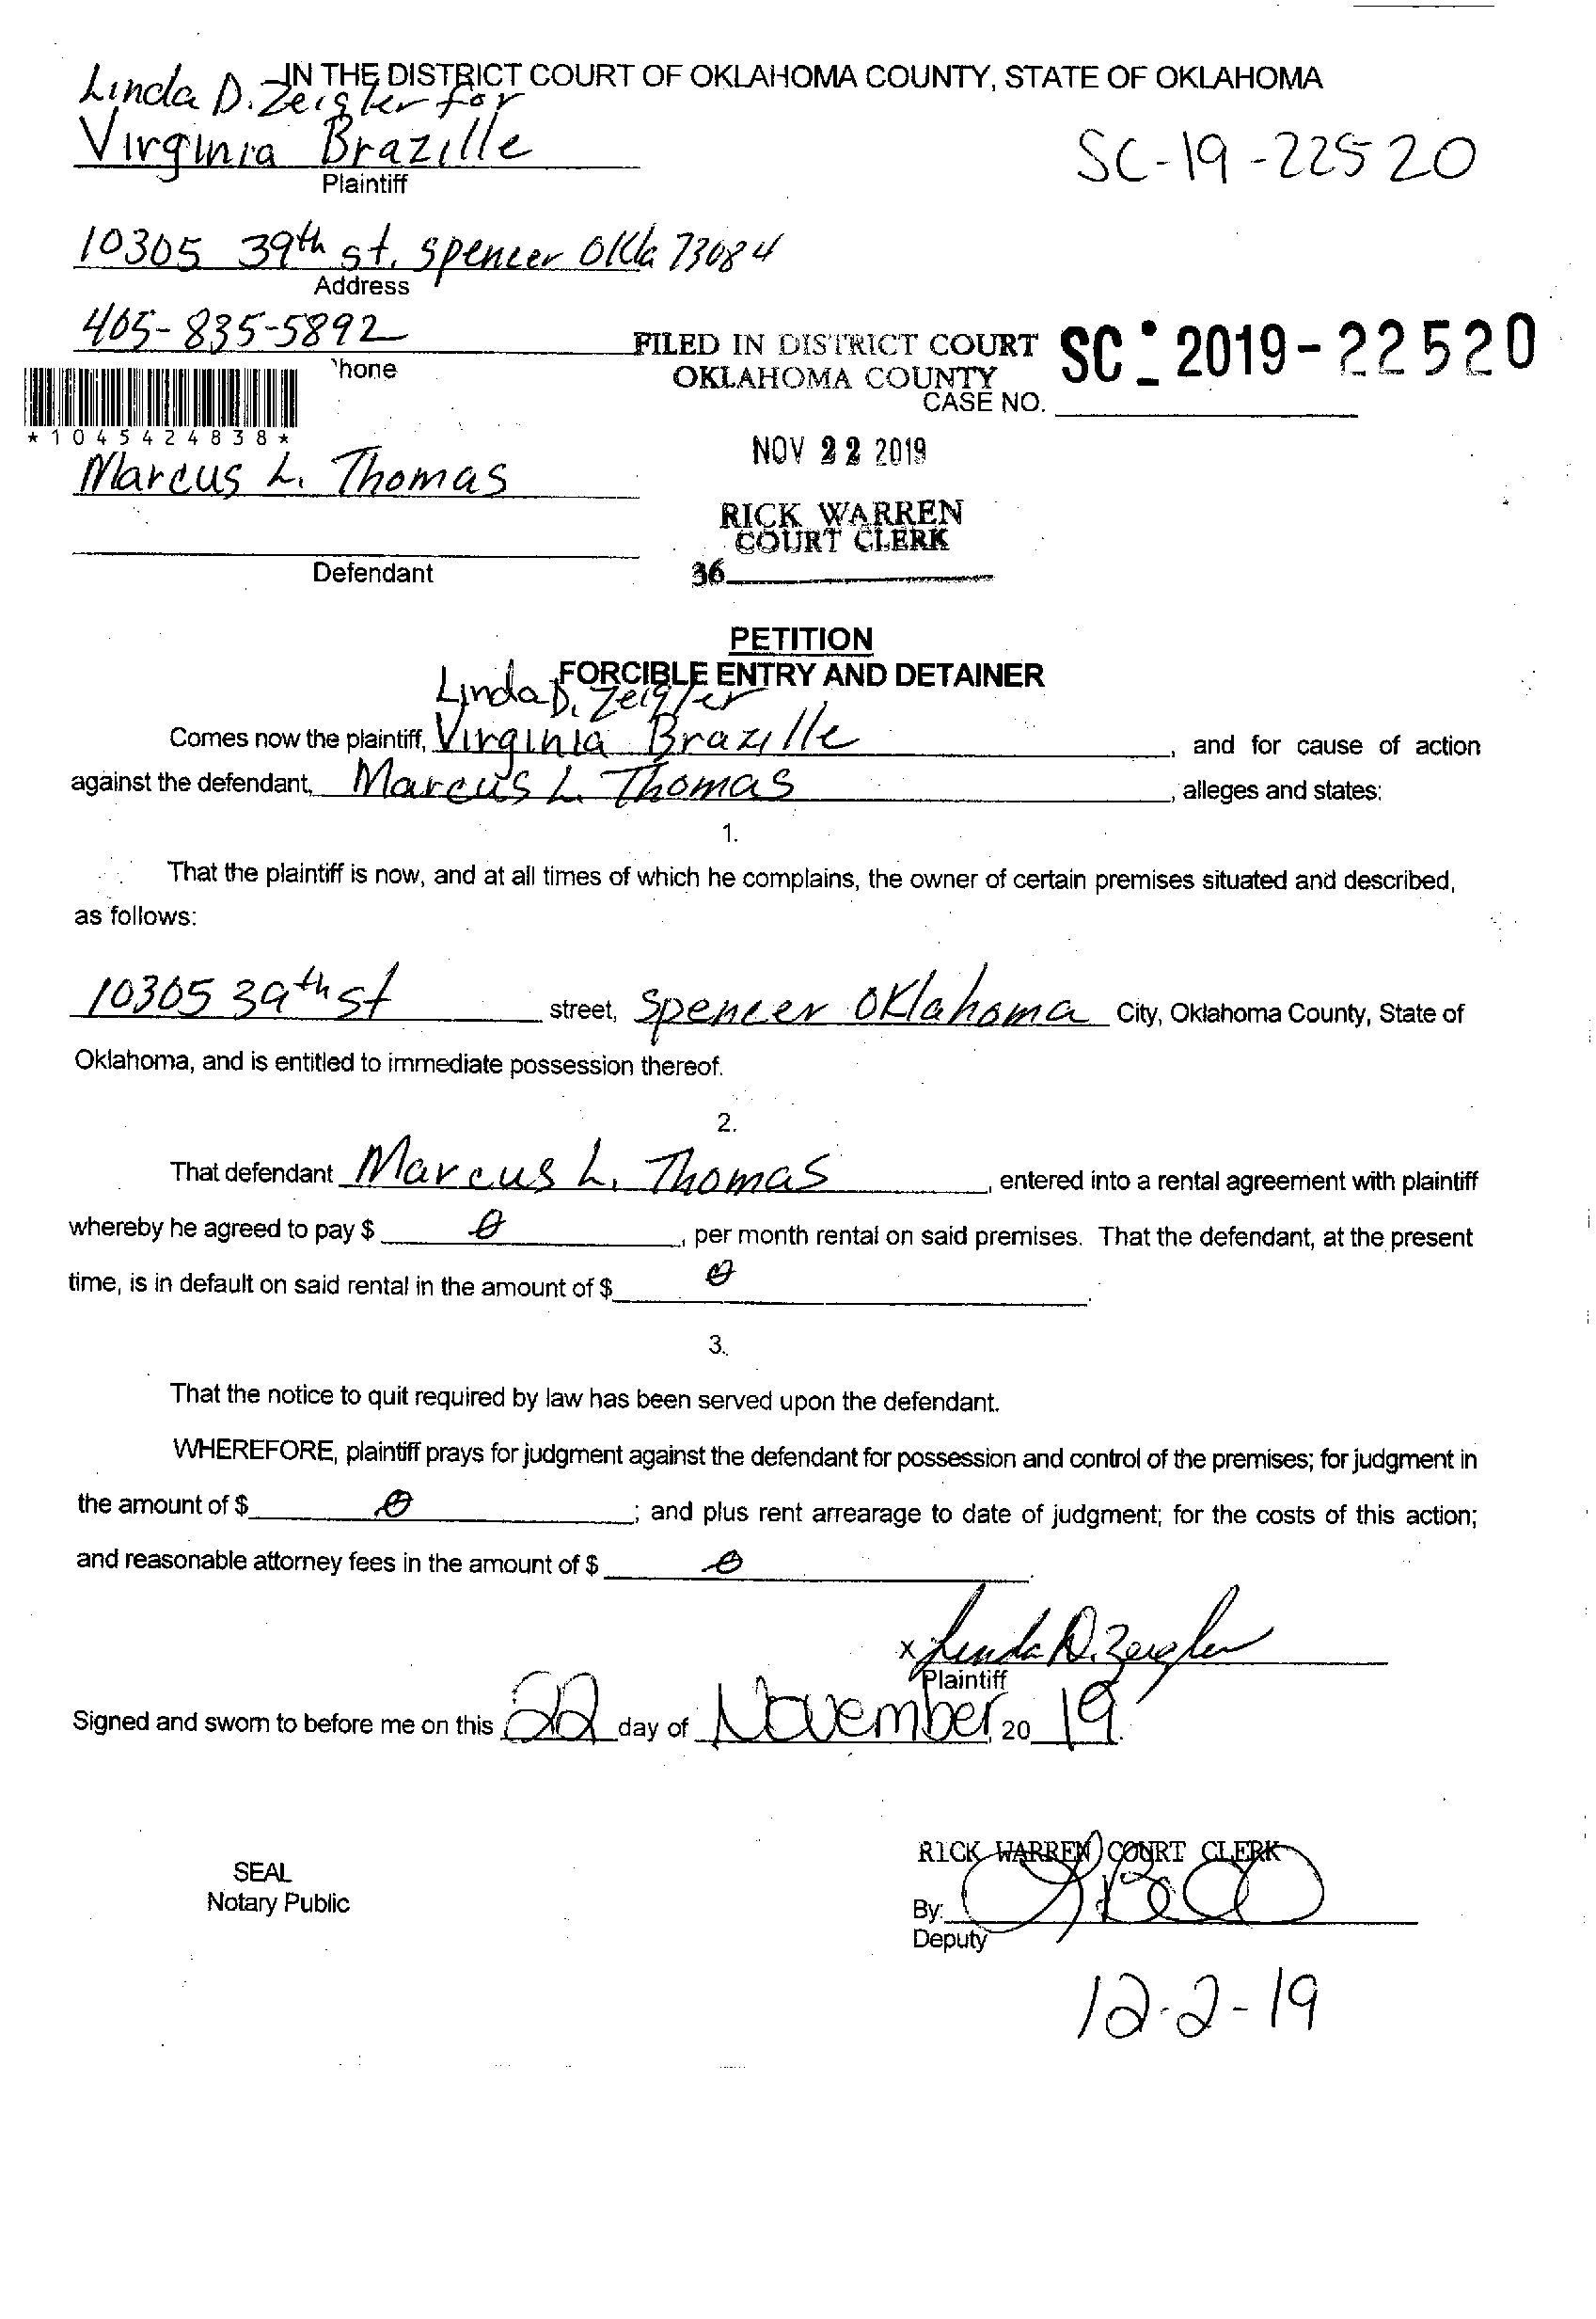 IN THE DISTRICT COURT OF OKLAHOMA COUNTY, STATE OF OKLAHOMA
Linda D. Zeigler for
Virginia Brazille
Plaintiff
SC-19-22520
10305 39th st. spencer Okla 73084
Address
405-835-5892
Phone
FILED IN DISTRICT COURT
OKLAHOMA COUNTY
SC - 2019-22520
CASE NO.
*1045424838*
NOV 22 2019
Marcus L. Thomas
RICK WARREN
COURT CLERK
36
Defendant
PETITION
FORCIBLE ENTRY AND DETAINER
Linda D. Zeigler
Comes now the plaintiff, Virginia Brazille, and for cause of action
against the defendant, Marcus L. Thomas, alleges and states:
1.
That the plaintiff is now, and at all times of which he complains, the owner of certain premises situated and described,
as follows:
10305 39th st street, Spencer Oklahoma City, Oklahoma County, State of
Oklahoma, and is entitled to immediate possession thereof.
2.
That defendant Marcus L. Thomas, entered into a rental agreement with plaintiff
whereby he agreed to pay $ 0, per month rental on said premises. That the defendant, at the present
time, is in default on said rental in the amount of $ 0.
3.
That the notice to quit required by law has been served upon the defendant.
WHEREFORE, plaintiff prays for judgment against the defendant for possession and control of the premises; for judgment in
the amount of $ 0; and plus rent arrearage to date of judgment; for the costs of this action;
and reasonable attorney fees in the amount of $ 0.
x Linda D. Zeigler
Plaintiff
Signed and sworn to before me on this 22 day of November, 20 19.
RICK WARREN COURT CLERK
SEAL
Notary Public
By:
Deputy
12-2-19